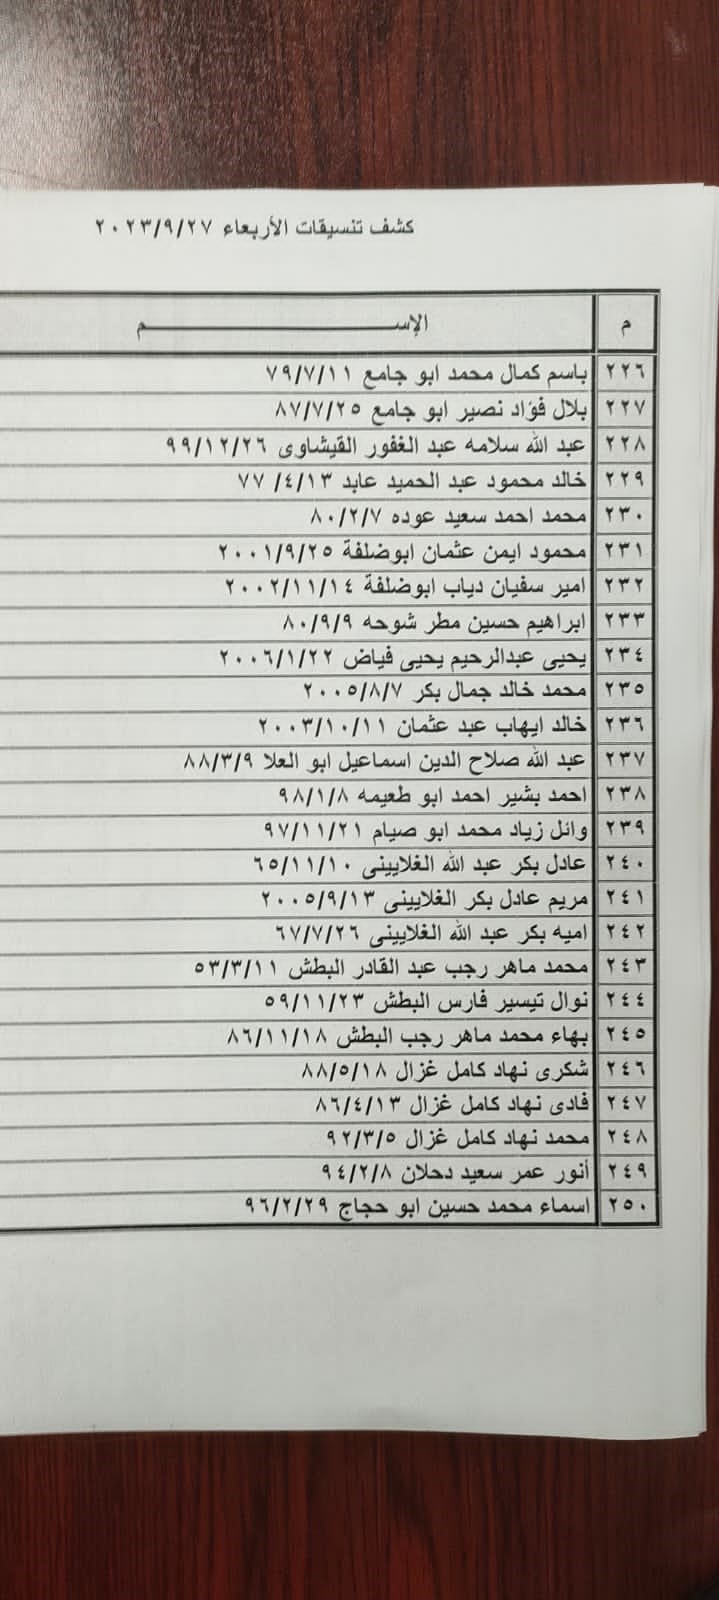 كشف تنسيقات الأربعاء ٢٠٢٣/٩/٢٧
م الإســـــــــــــم
٢٢٦ باسم كمال محمد ابو جامع ٧٩/٧/١١
٢٢٧ بلال فؤاد نصير ابو جامع ٨٧/٧/٢٥
٢٢٨ عبد الله سلامه عبد الغفور القيشاوى ٩٩/١٢/٢٦
٢٢٩ خالد محمود عبد الحميد عابد ٧٧ /٤/١٣
٢٣٠ محمد احمد سعيد عوده ٨٠/٢/٧
٢٣١ محمود ايمن عثمان ابوضلفة ٢٠٠١/٩/٢٥
٢٣٢ امير سفيان دياب ابوضلفة ٢٠٠٢/١١/١٤
٢٣٣ ابراهيم حسين مطر شوحه ٨٠/٩/٩
٢٣٤ يحيى عبدالرحيم يحيى فياض ٢٠٠٦/١/٢٢
٢٣٥ محمد خالد جمال بكر ٢٠٠٥/٨/٧
٢٣٦ خالد ايهاب عبد عثمان ٢٠٠٣/١٠/١١
٢٣٧ عبد الله صلاح الدين اسماعيل ابو العلا ٨٨/٣/٩
٢٣٨ احمد بشير احمد ابو طعيمه ٩٨/١/٨
٢٣٩ وائل زياد محمد ابو صيام ٩٧/١١/٢١
٢٤٠ عادل بكر عبد الله الغلايينى ٦٥/١١/١٠
٢٤١ مريم عادل بكر الغلايينى ٢٠٠٥/٩/١٣
٢٤٢ اميه بكر عبد الله الغلايينى ٦٧/٧/٢٦
٢٤٣ محمد ماهر رجب عبد القادر البطش ٥٣/٣/١١
٢٤٤ نوال تيسير فارس البطش ٥٩/١١/٢٣
٢٤٥ بهاء محمد ماهر رجب البطش ٨٦/١١/١٨
٢٤٦ شكرى نهاد كامل غزال ٨٨/٥/١٨
٢٤٧ فادى نهاد كامل غزال ٨٦/٤/١٣
٢٤٨ محمد نهاد كامل غزال ٩٢/٣/٥
٢٤٩ أنور عمر سعيد دحلان ٩٤/٢/٨
٢٥٠ اسماء محمد حسين ابو حجاج ٩٦/٢/٢٩